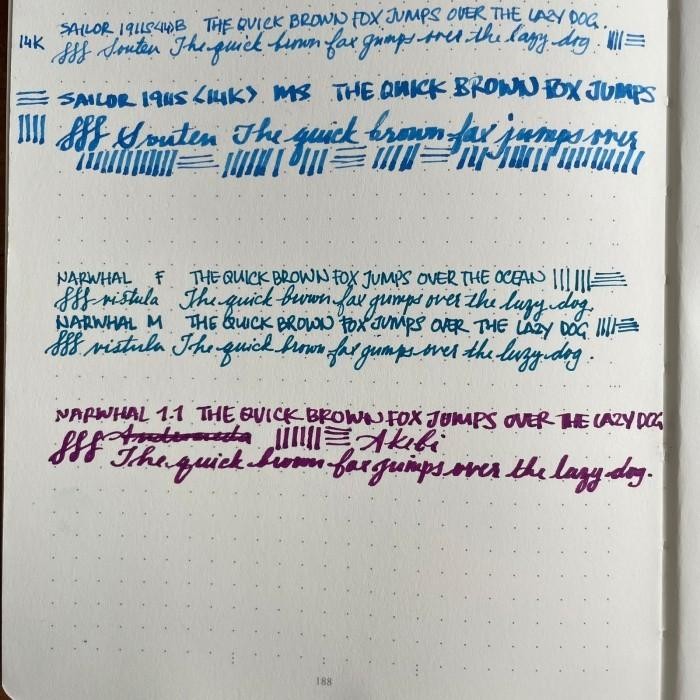 SAILOR 1911S <14K> B THE QUICK BROWN FOX JUMPS OVER THE LAZY DOG.
14K fff Souten The quick brown fox jumps over the lazy dog
SAILOR 1911S <14K> MS THE QUICK BROWN FOX JUMPS
fff Souten The quick brown fox jumps over
NARWHAL F THE QUICK BROWN FOX JUMPS OVER THE OCEAN
fff vistula The quick brown fox jumps over the lazy dog.
NARWHAL M THE QUICK BROWN FOX JUMPS OVER THE LAZY DOG
fff vistula The quick brown fox jumps over the lazy dog.
NARWHAL 1.1 THE QUICK BROWN FOX JUMPS OVER THE LAZY DOG
fff Andromeda Akebi
The quick brown fox jumps over the lazy dog.
188